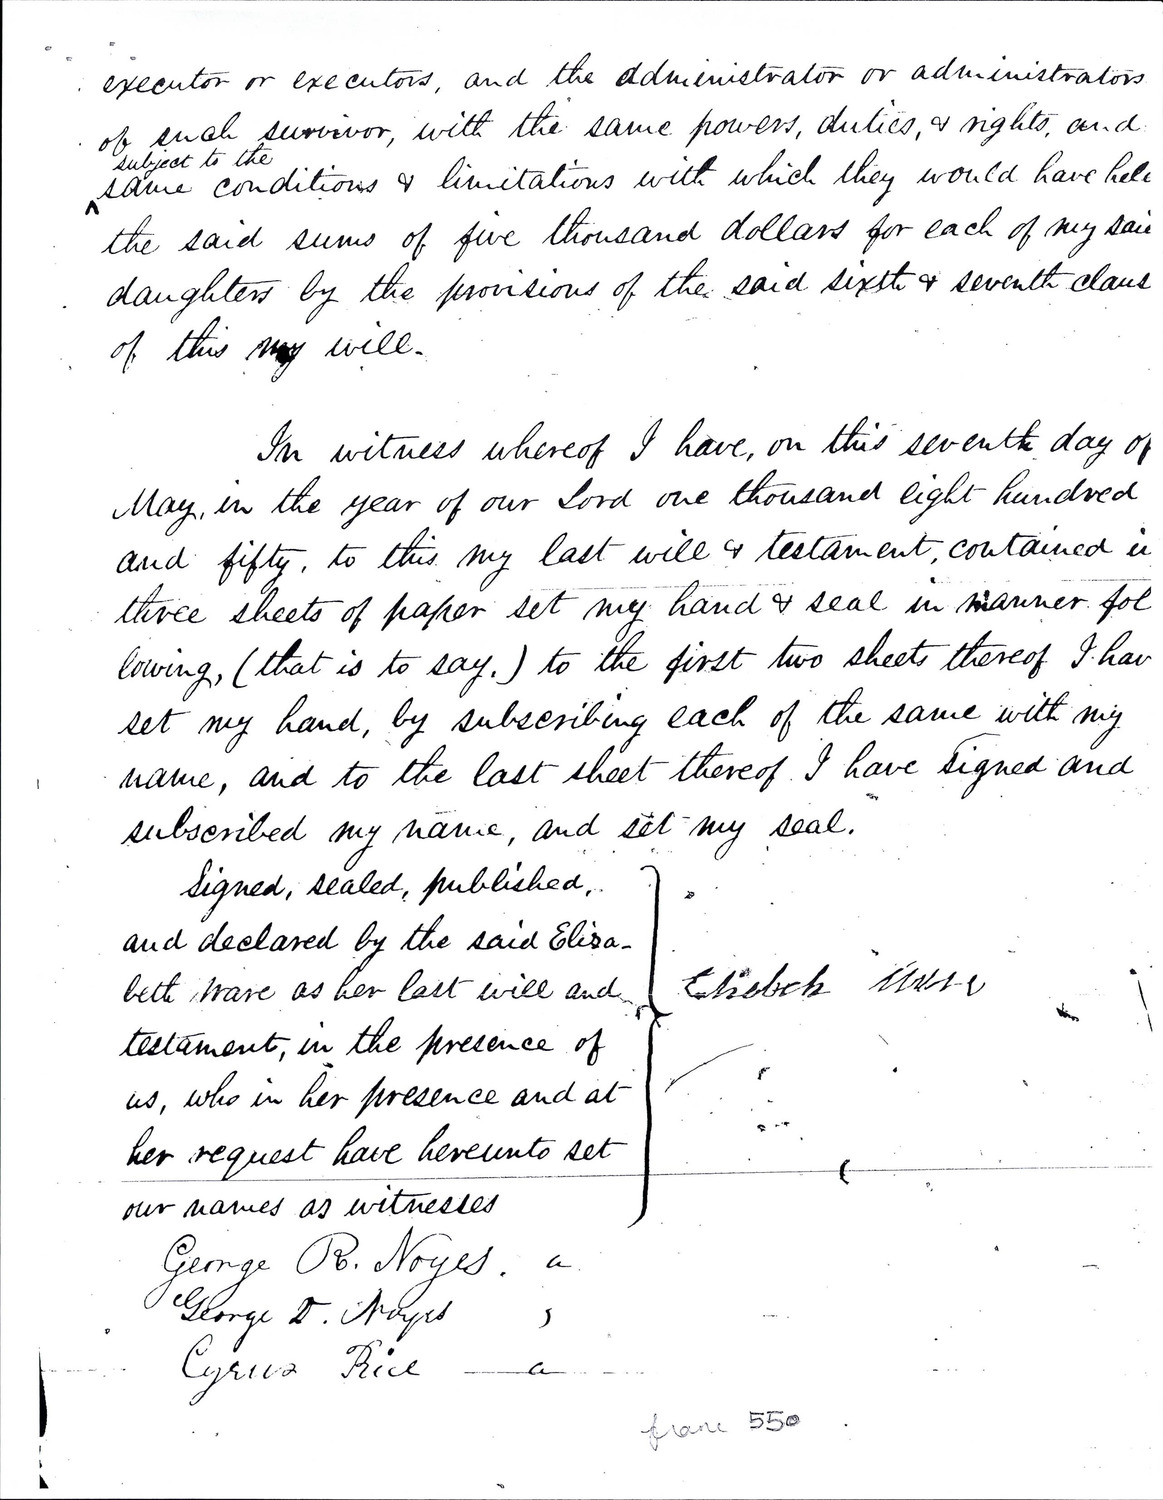 executor or executors, and the administrator or administrators
of such survivor, with the same powers, duties, & rights, and
subject to the
same conditions & limitations with which they would have held
the said sums of five thousand dollars for each of my said
daughters by the provisions of the said sixth & seventh claus
of this my will.
In witness whereof I have, on this seventh day of
May, in the year of our Lord one thousand eight hundred
and fifty, to this my last will & testament, contained in
three sheets of paper set my hand & seal in manner fol
lowing, (that is to say,) to the first two sheets thereof I hav
set my hand, by subscribing each of the same with my
name, and to the last sheet thereof I have signed and
subscribed my name, and set my seal.
Signed, sealed, published,
and declared by the said Eliza-
beth Ware as her last will and
testament, in the presence of
us, who in her presence and at
her request have hereunto set
our names as witnesses
George R. Noyes. a
George D. Noyes
Cyrus Rice — a
frame 550